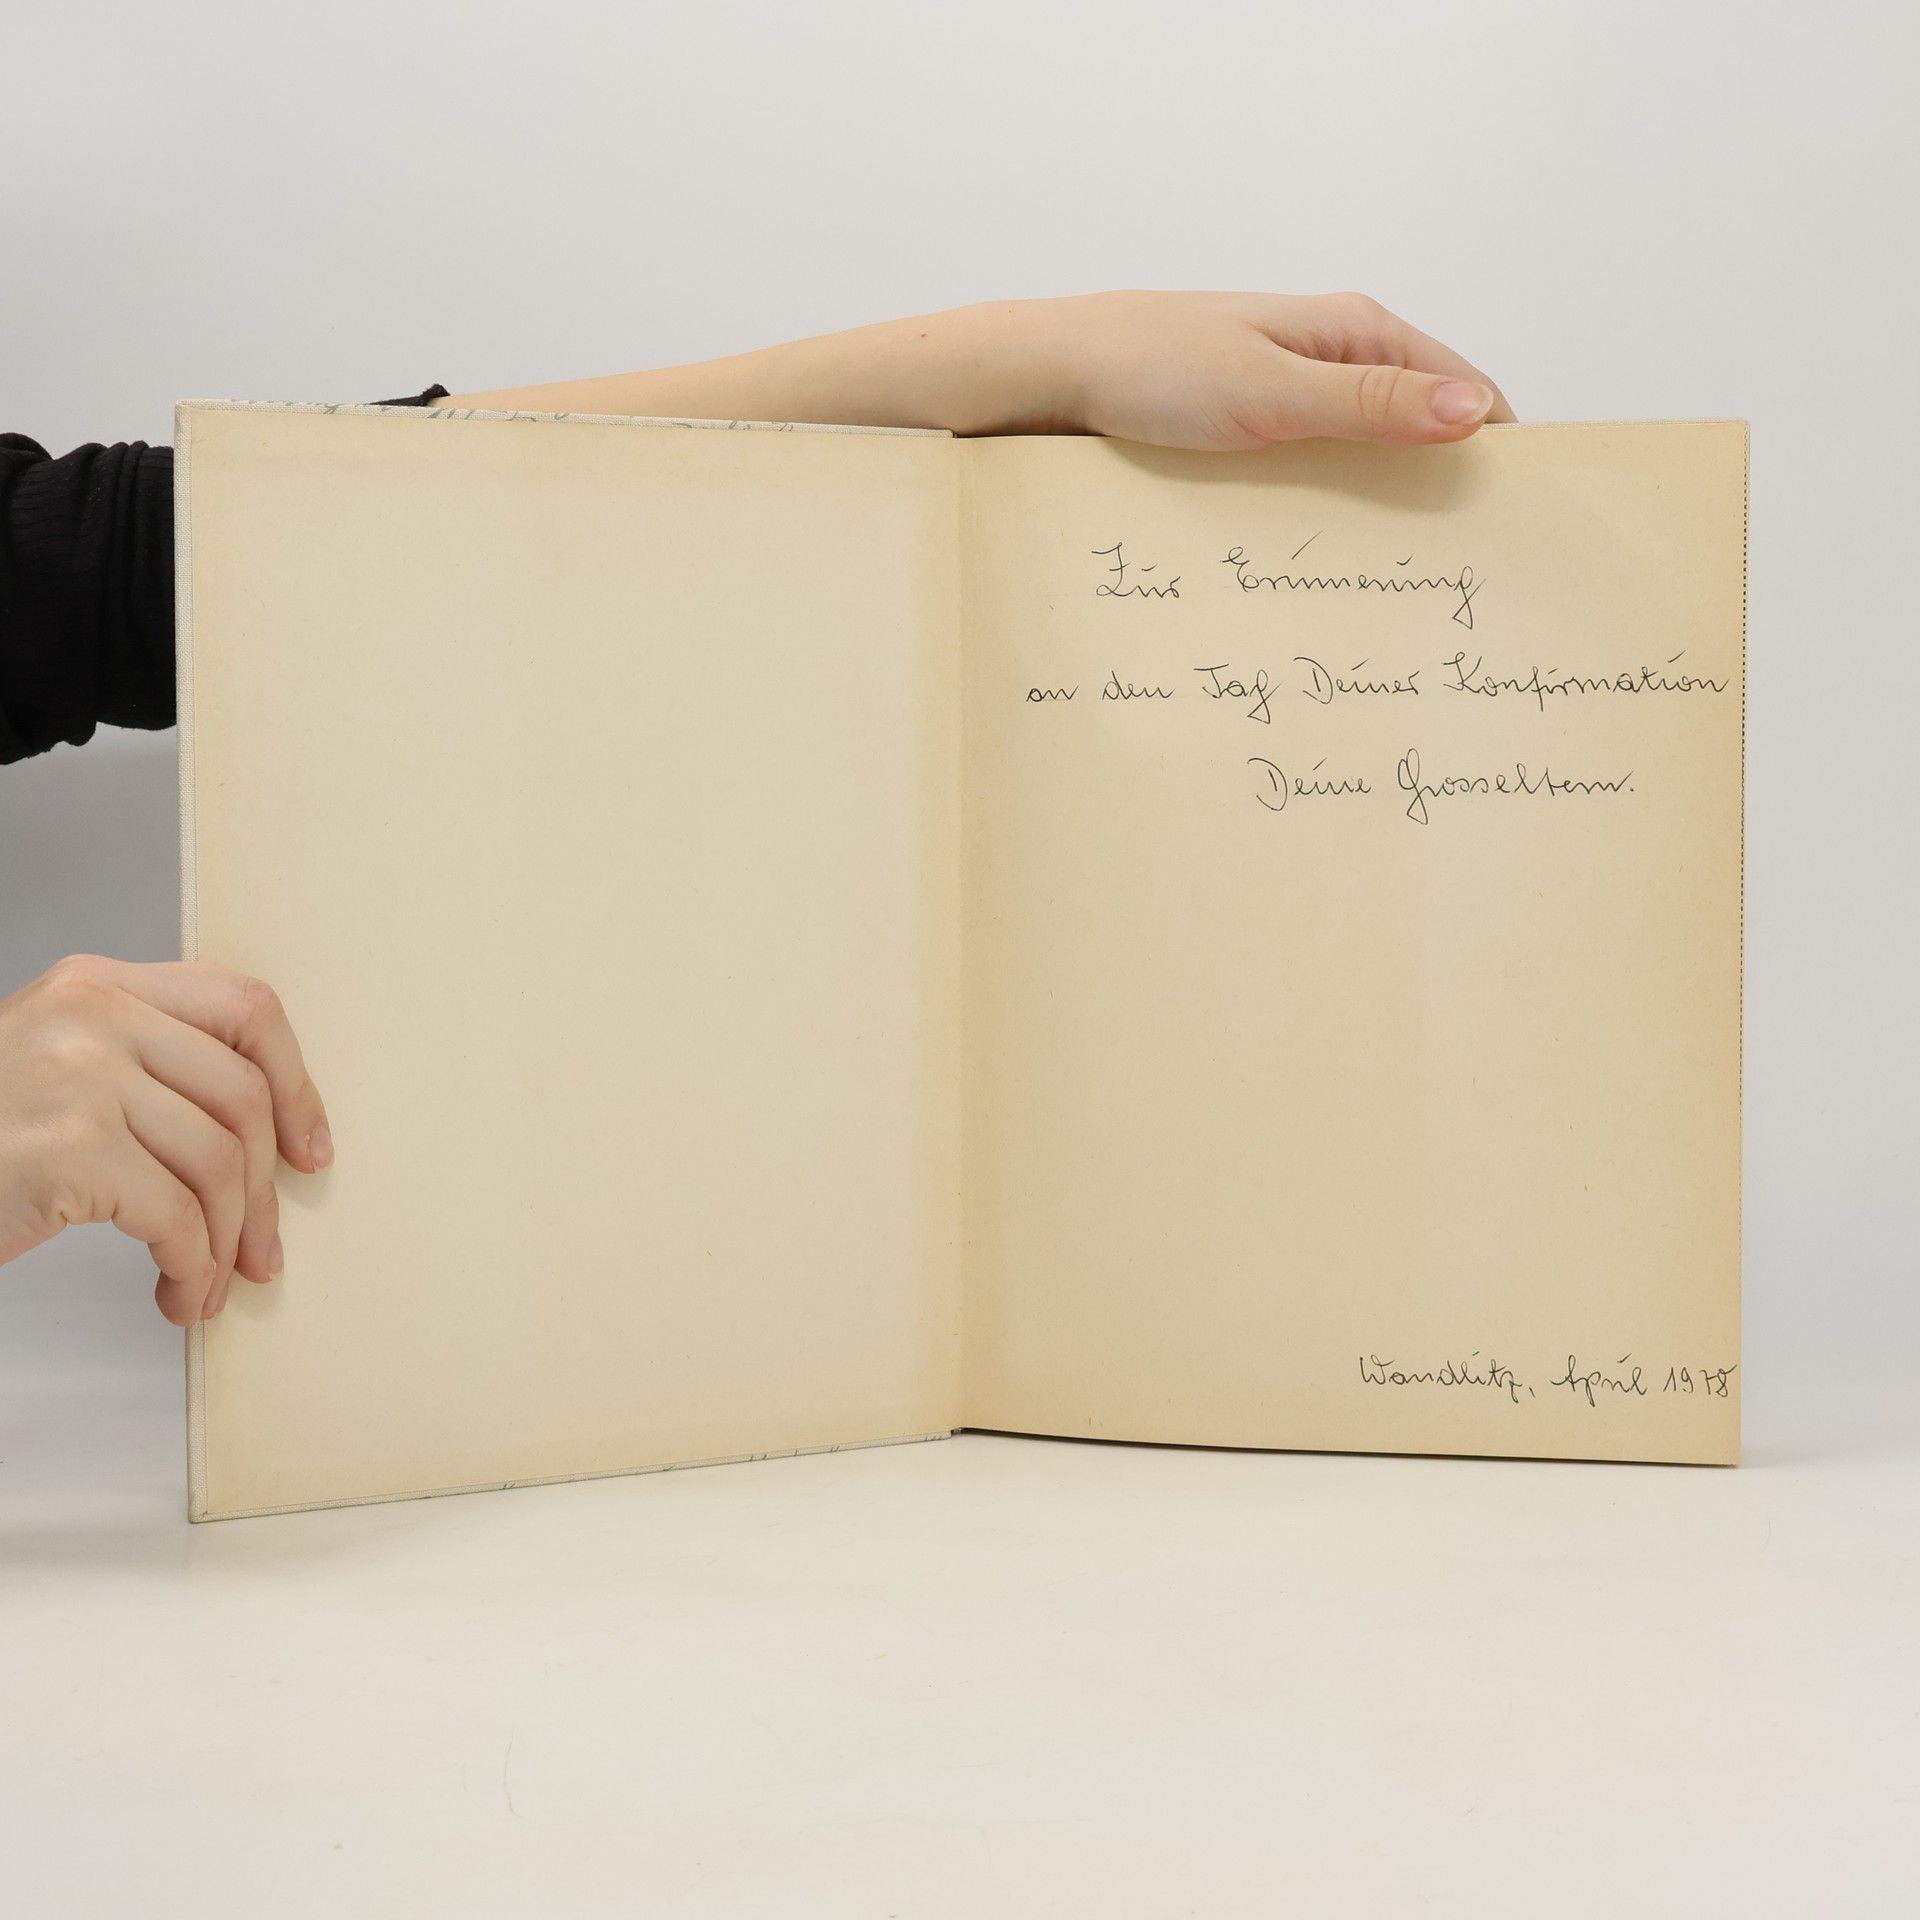 Zur Erinnerung
an den Tag Deiner Konfirmation
Deine Grosseltern.
Wandlitz, April 1978